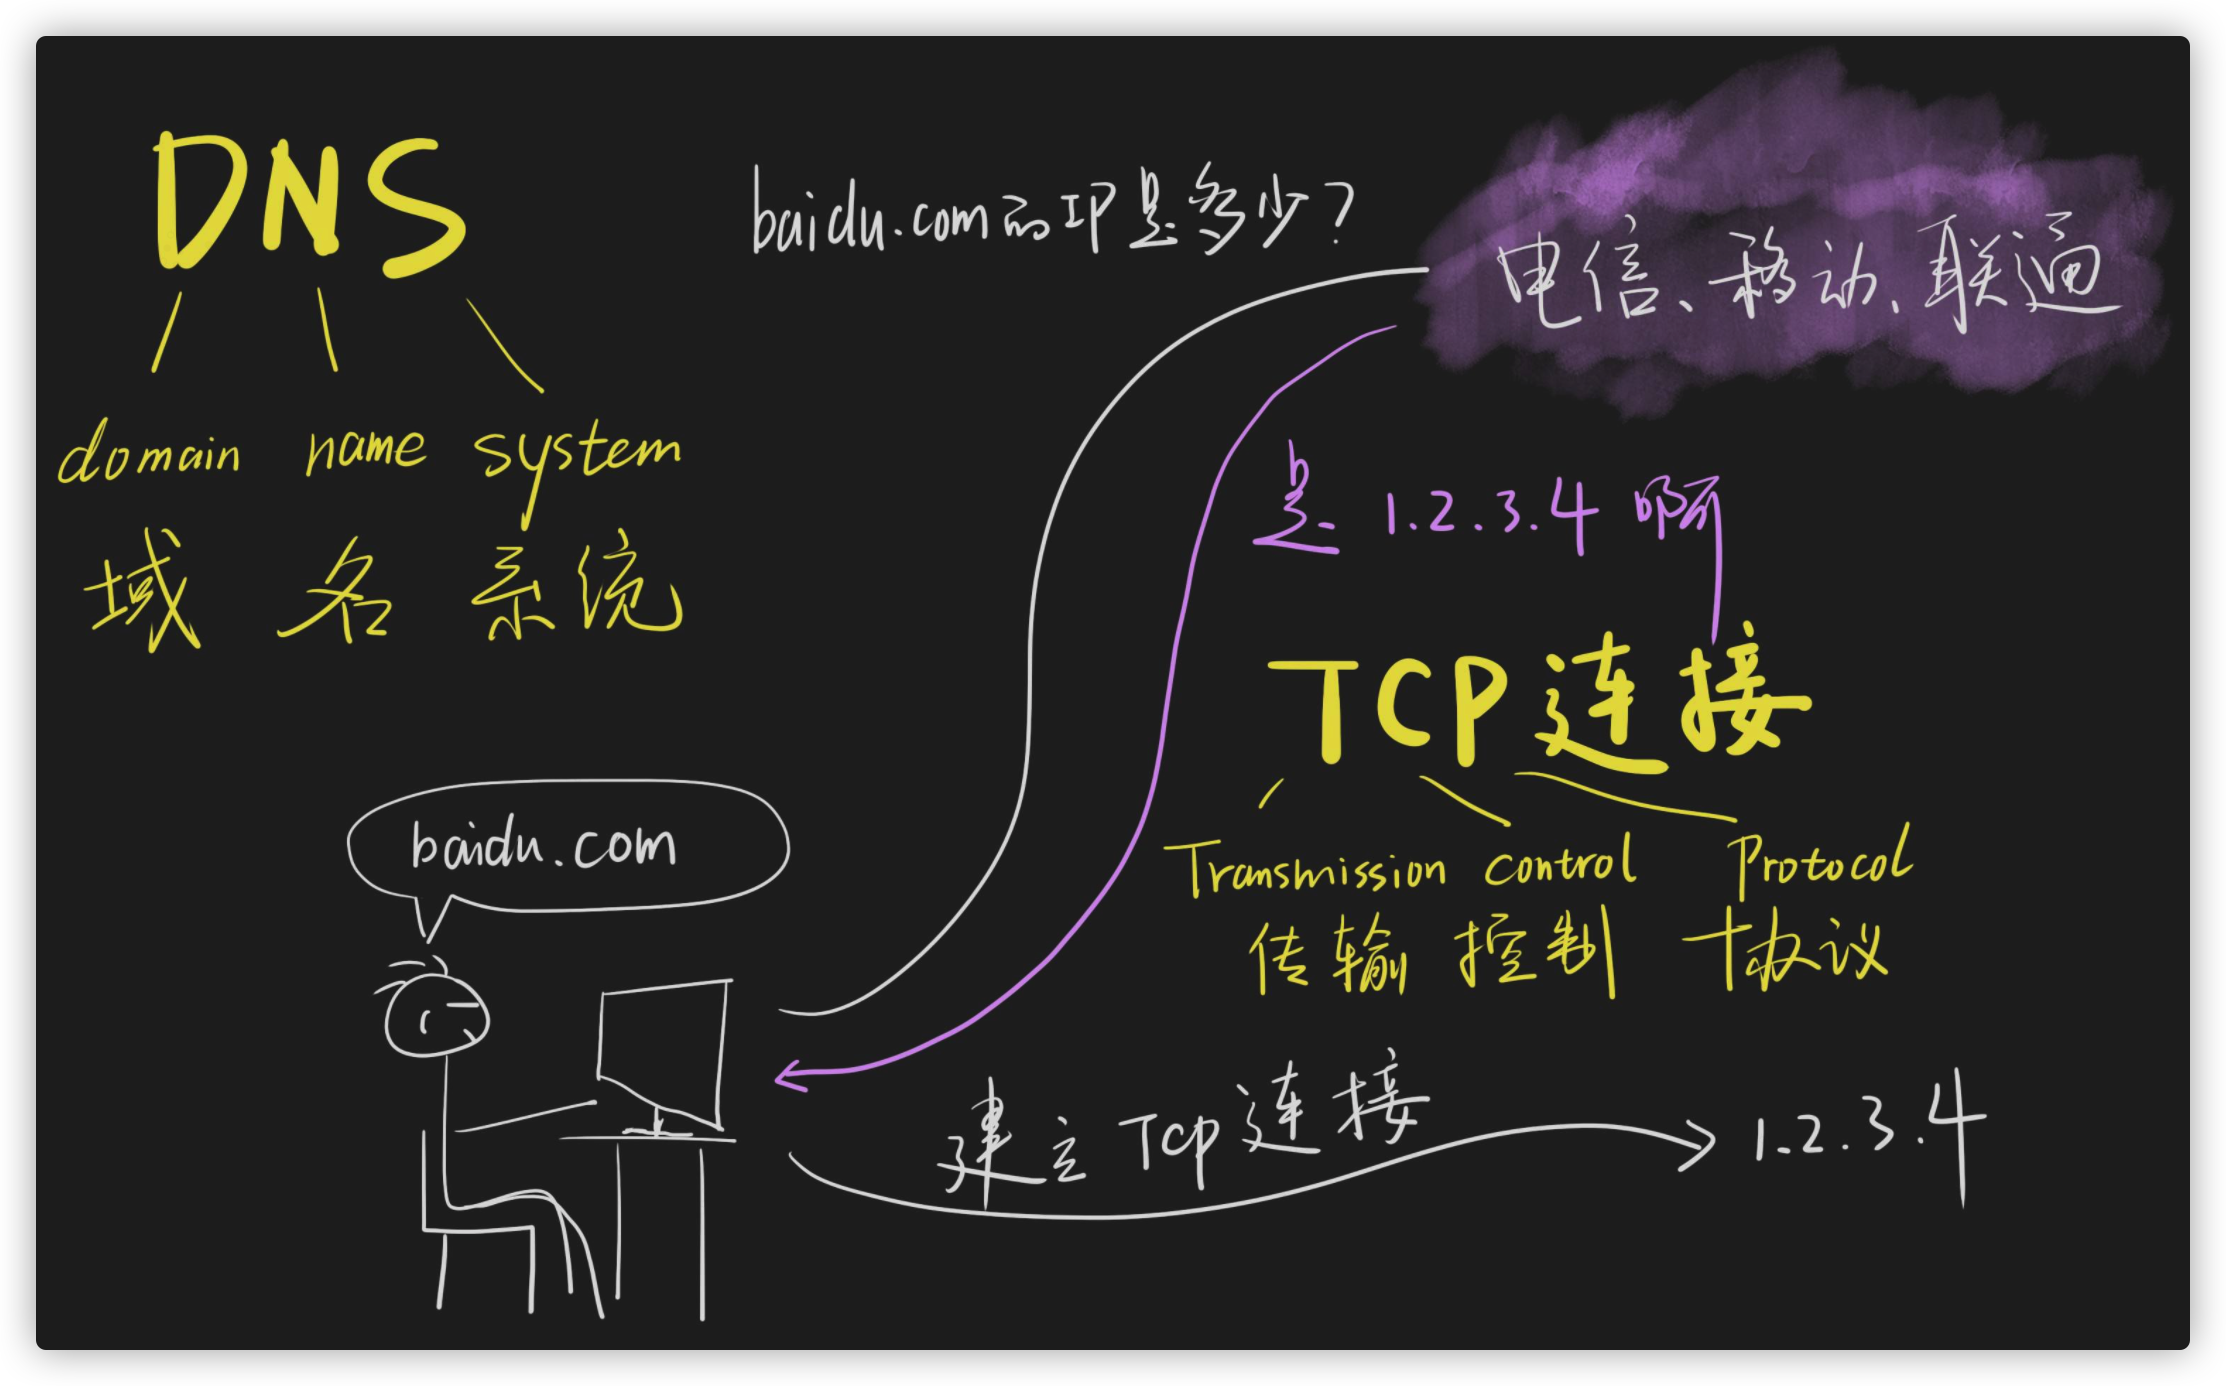 DNS
domain name system
域 名 系统
baidu.com的IP是多少?
电信、移动、联通
是 1.2.3.4 啊
TCP连接
Transmission control Protocol
传输 控制 协议
baidu.com
建立 TCP连接
1.2.3.4